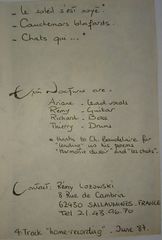 - le soleil s'est noyé.
- Cauchemars blafards.
- Chats qui ... *
Nocturne are:
Ariane - Lead vocals
Rémy - Guitar
Richard - Bass
Thierry - Drums
* thanks to Ch. Baudelaire for
"lending" us his poems
"Harmonie du soir" and "les chats".
Contact: Rémy Lozowski
8 Rue de Cambrai
62430 SALLAUMINES. FRANCE
Tel 21.43.96.70
4 Track "home-recording" - June 87.